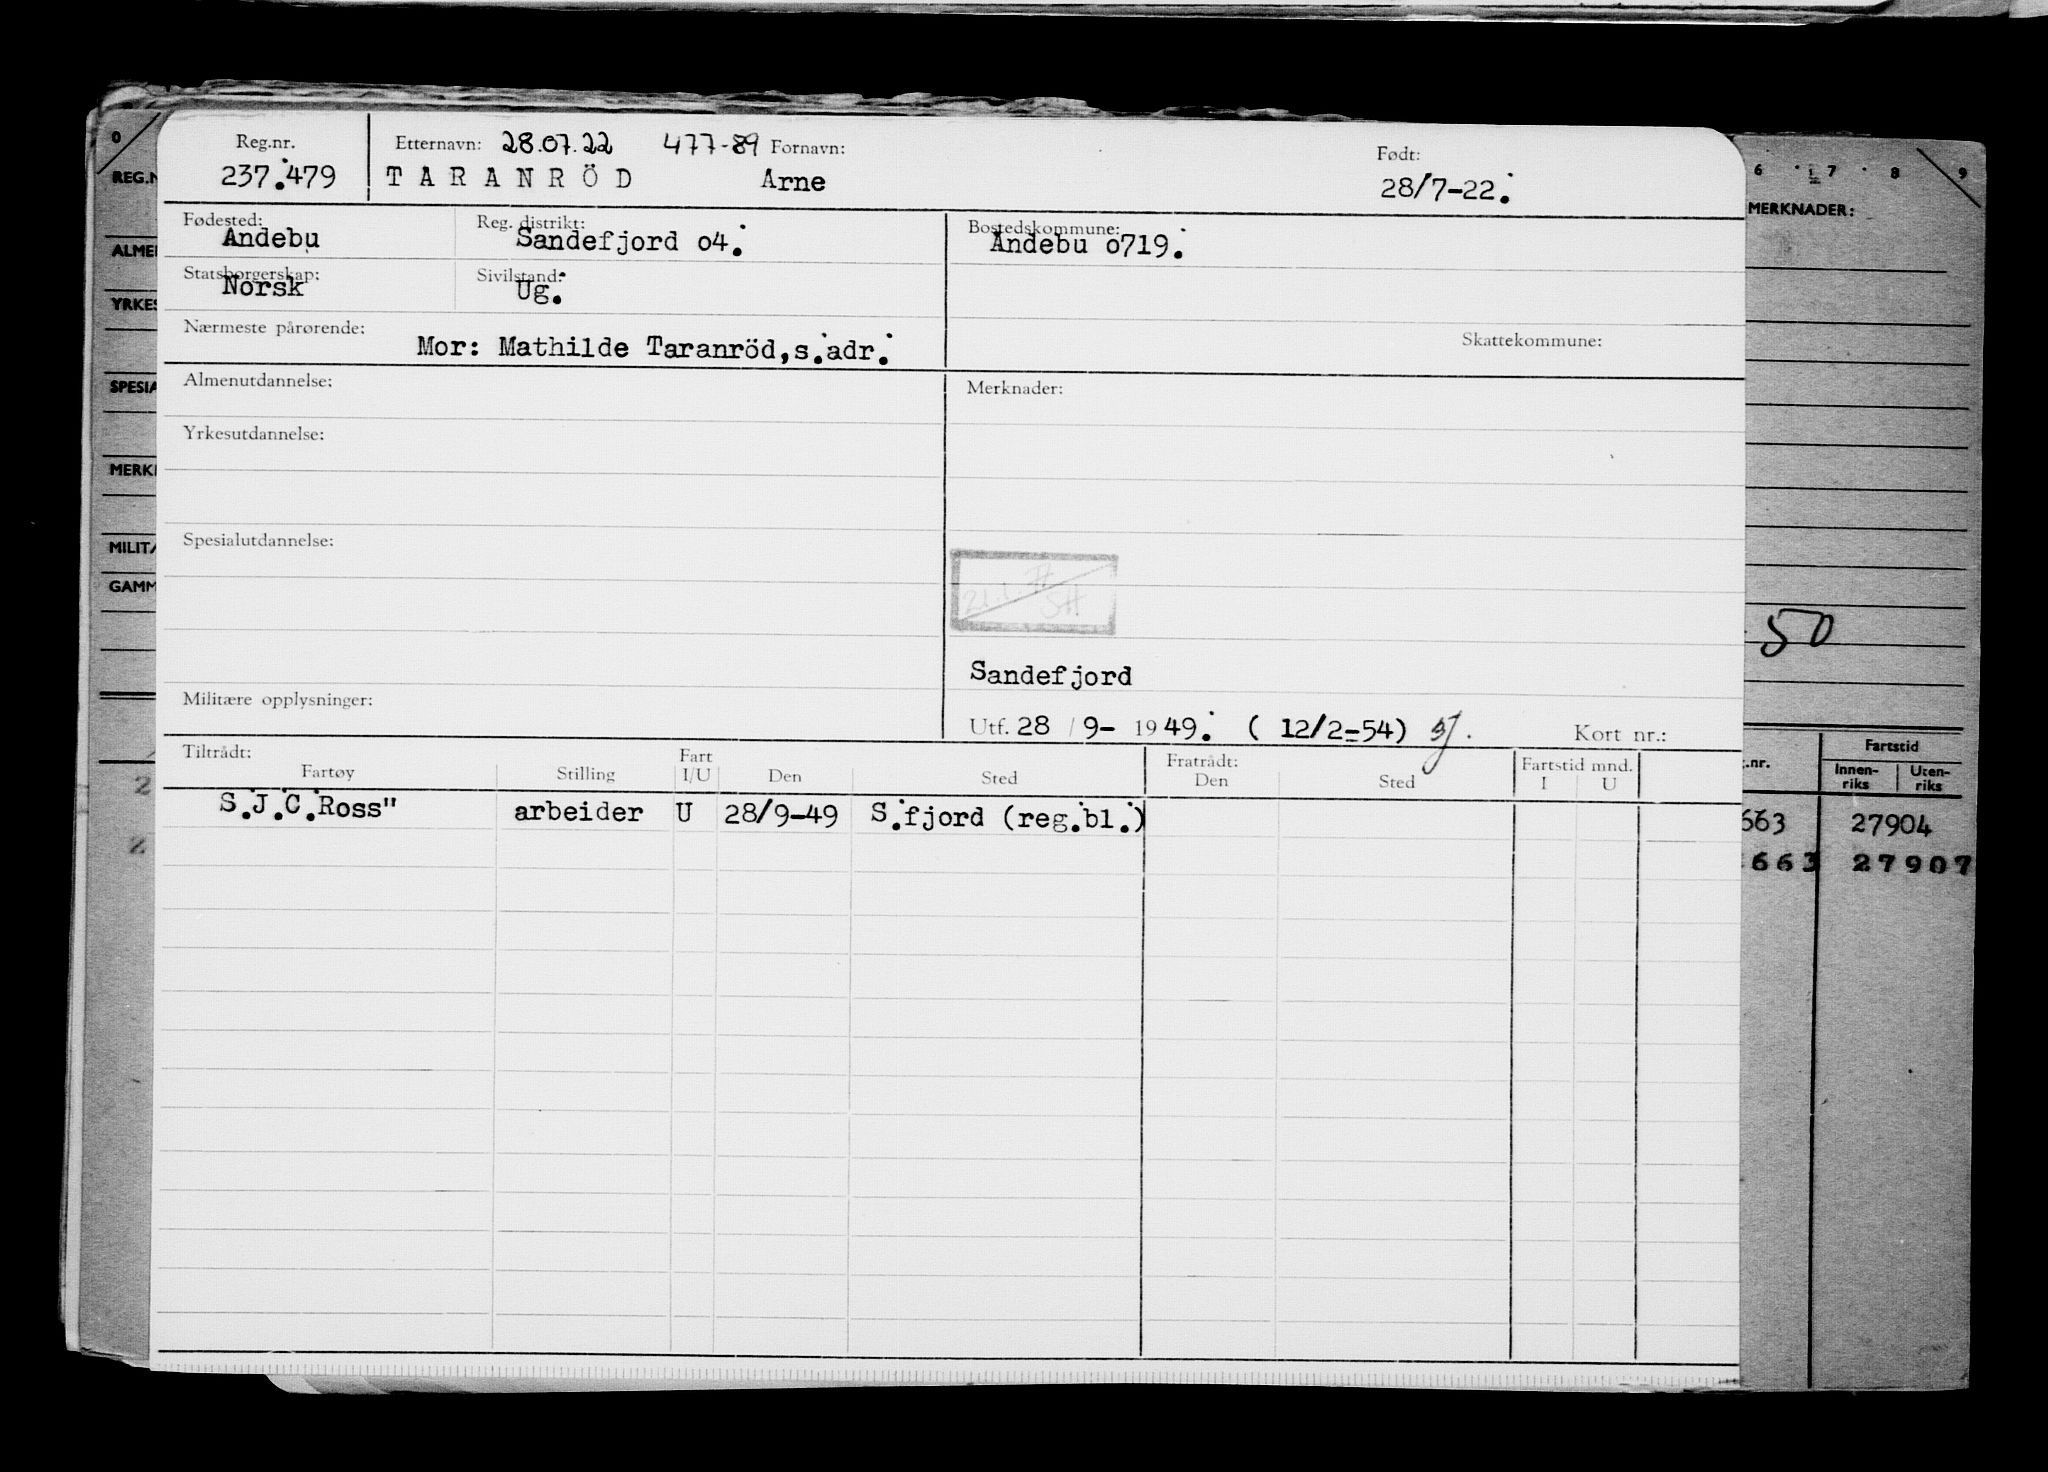 Reg.nr. Etternavn: 28.07.22 477-89 Fornavn: Født:
237.479 TARANRÖD Arne 28/7-22.
Fødested: Reg. distrikt: Bostedskommune:
Andebu Sandefjord o4. Andebu o719.
Statsborgerskap: Sivilstand:
Norsk Ug.
Nærmeste pårørende: Skattekommune:
Mor: Mathilde Taranröd,s.adr.
Almenutdannelse: Merknader:
Yrkesutdannelse:
Spesialutdannelse:
Sandefjord
Militære opplysninger:
Utf. 28 / 9- 1949. ( 12/2-54) Kort nr.:
Tiltrådt: Fart Fratrådt: Fartstid mnd.
Fartøy Stilling I/U Den Sted Den Sted I U
S.J.C.Ross" arbeider U 28/9-49 S.fjord (reg.bl.)
0
REG.N
ALME
YRKES
SPESIA
MERK
MILIT
GAMM
2
2
6 7 8 9
MERKNADER:
50
.nr. Fartstid
Innen-riks Uten-riks
663 27904
663 27907